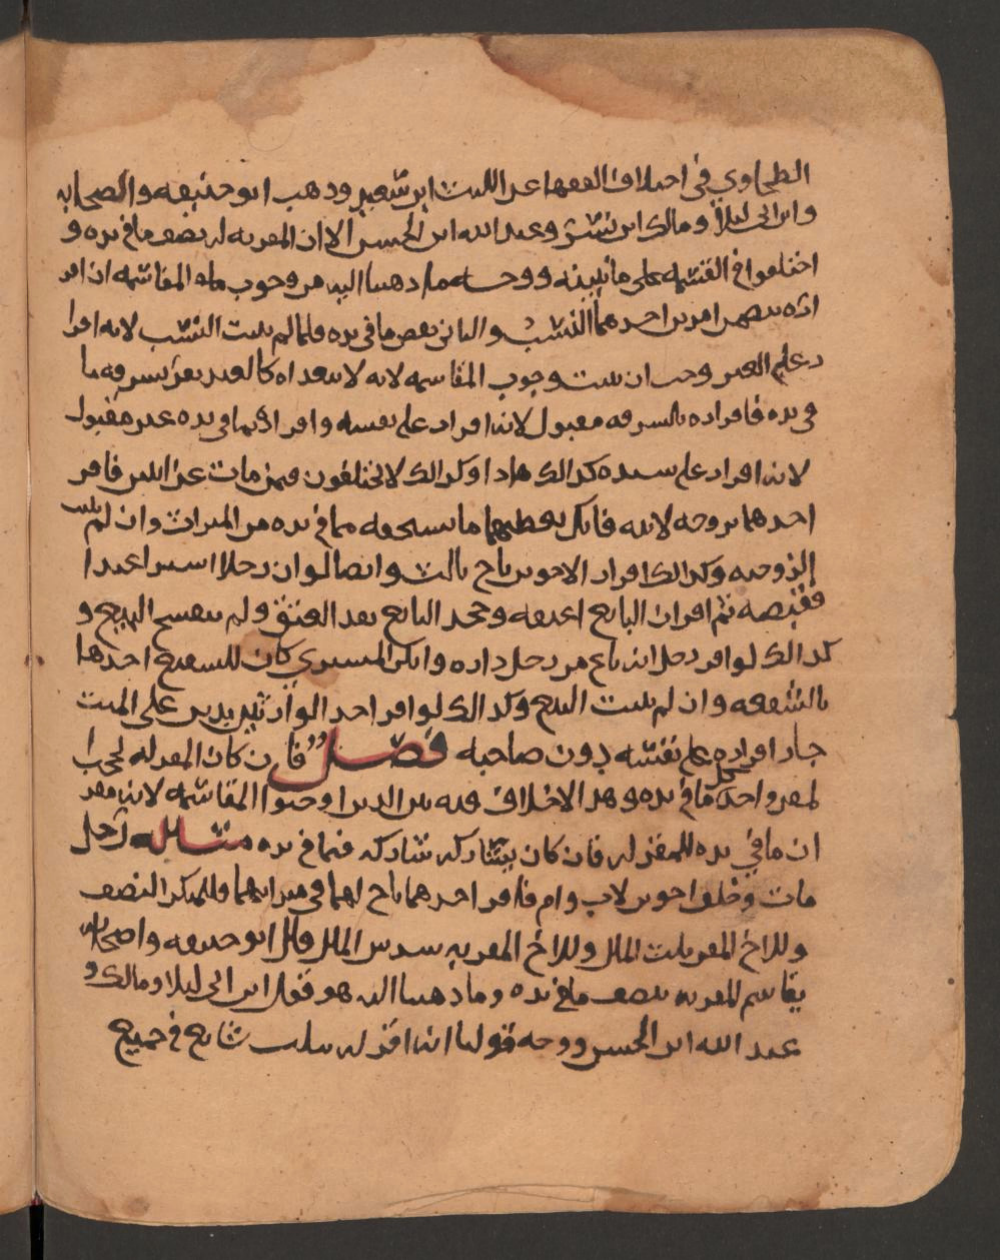 الطحاوي في اختلاف الفقها عن الليث ابن سعد وذهب ابو حنيفه واصحابه
وابن ابي ليلا ومالك ابن وعبد الله ابن الحسن الا ان المقر به له نصف ما في يده و
اختلفوا في القسمه على ما نبينه ووجه ما ذهبنا اليه من وجوب المقاسمه ان اقر
اره تضمن امرين احدهما النسب والثاني بعض ما في يده فلما لم يثبت النسب لانه اقرا
ر على الغير وجب ان يثبت وجوب المقاسمه لانه لا يتعداه كالعبد يقر بسرقه ما
في يده فاقراره بالسرقه مقبول لانه اقرار على نفسه واقراره بما في يده غير مقبول
لانه اقرار على سيده كذالك هاذا وكذالك لا يختلفون فيمن مات عن ابنين فاقر
احدهما بزوجه لابيه فانه يعطيها ما تستحقه مما في يده من الميراث وان لم يثبت
الزوجيه وكذالك اقرار الاخوين باخ ثالث وايضا لو ان رجلا اشترا عبدا
فقبضه ثم اقر ان البايع اعتقه وجحد البايع نفذ العتق ولم ينفسخ البيع و
كذالك لو اقر رجل انه باع من رجل داره وانكر المشتري كان للشفيع اخذها
بالشفعه وان لم يثبت البيع وكذالك لو اقر احد الوارثين بدين على الميت
جاز اقراره على نفسه دون صاحبه فصل فان كان المقر له يحجب
المقر واحد كل ما في يده وهذا الاختلاف فيه بين الذين اوجبوا المقاسمه لانه مقر
ان ما في يده للمقر له فان كان يشاركه شاركه فيما في يده مسئله رجل
مات وخلف اخوين لاب وام فاقر احدهما باخ لهما في ميراثهما فللمنكر النصف
وللاخ المقر ثلث المال وللاخ المقر به سدس المال وقال ابو حنيفه واصحابه
يقاسم المقر به نصف ما في يده وما ذهبنا اليه هو قول ابن ابي ليلا ومالك و
عبد الله ابن الحسن ووجه قولنا انه اقر له بثلث شايع في جميع